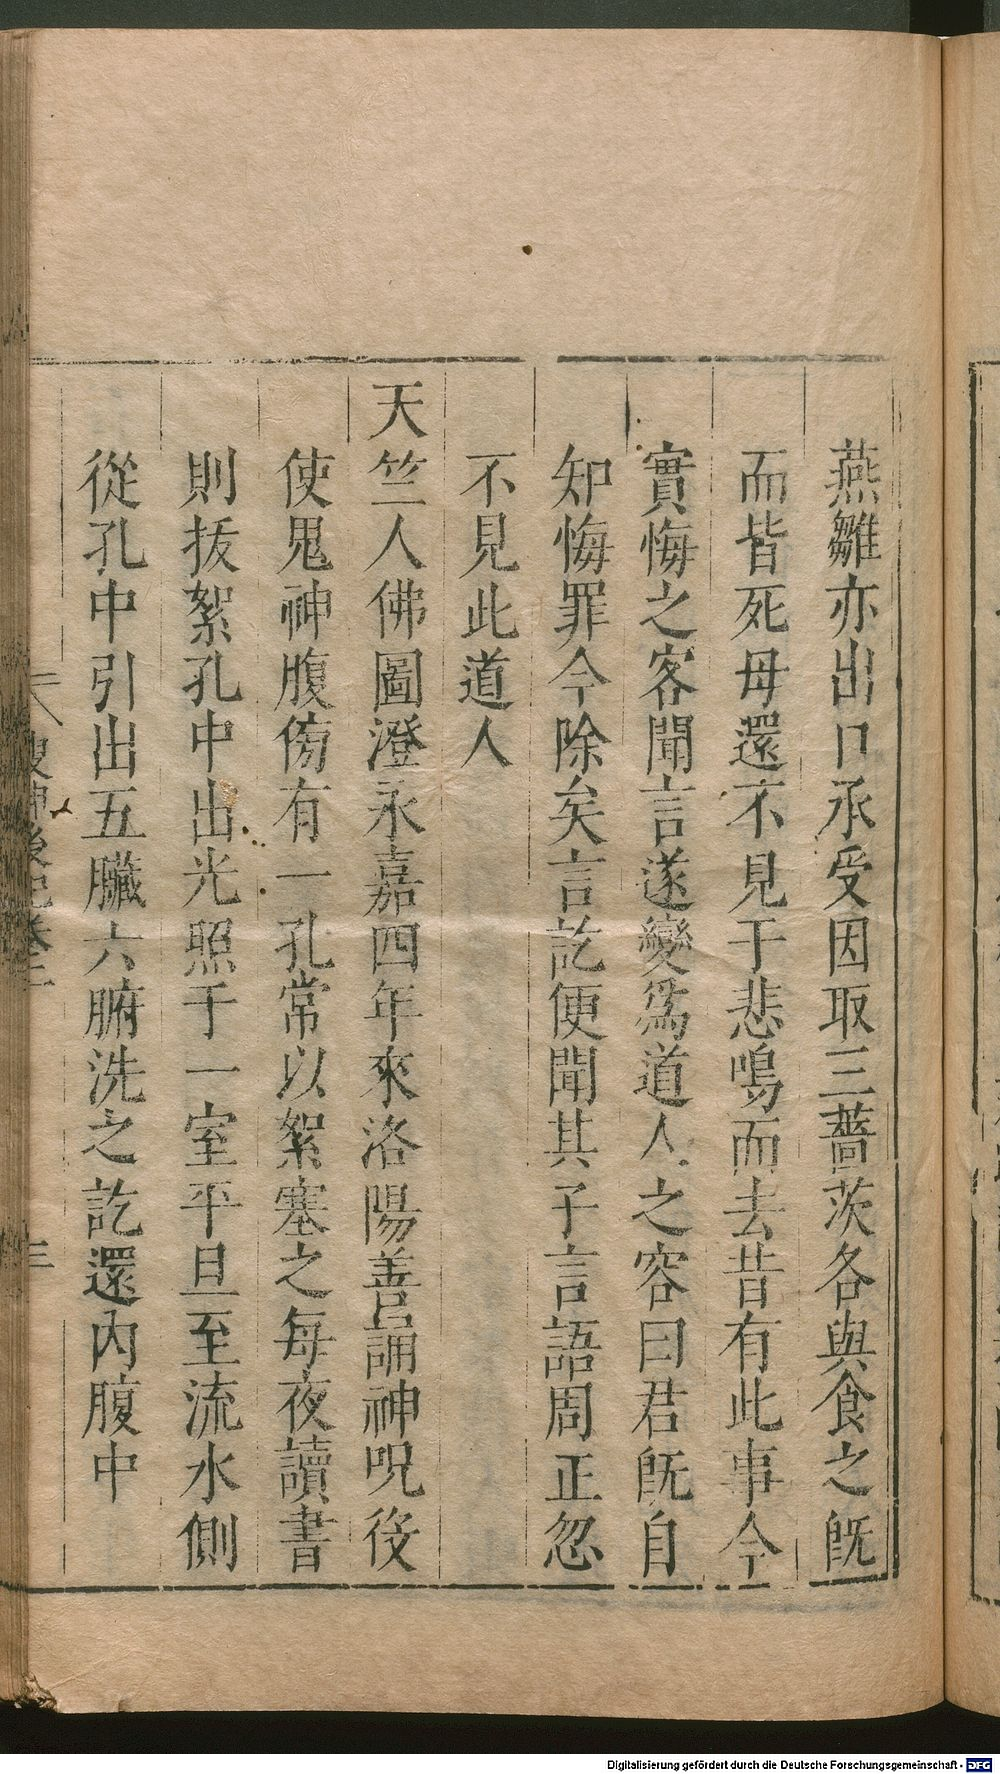 燕雛亦出口承受因取三薔茨各與食之既
而皆死母還不見于悲鳴而去昔有此事今
實悔之客聞言遂變爲道人之容曰君既自
知悔罪今除矣言訖便聞其子言語周正忽
不見此道人
天竺人佛圖澄永嘉四年來洛陽善誦神呪役
使鬼神腹傍有一孔常以絮塞之每夜讀書
則拔絮孔中出光照于一室平旦至流水側
從孔中引出五臟六腑洗之訖還內腹中
搜神後記卷二
三
Digitalisierung gefördert durch die Deutsche Forschungsgemeinschaft - DFG